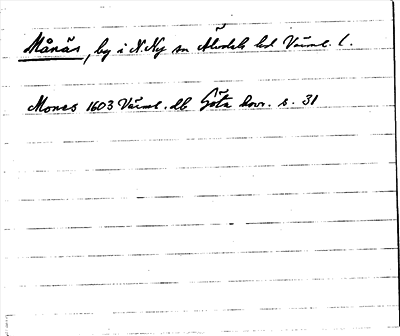 Månäs, by i N. Ny sn Älvdals hd Värml. l.
Monas 1603 Värml. db Göta hovr. s. 31